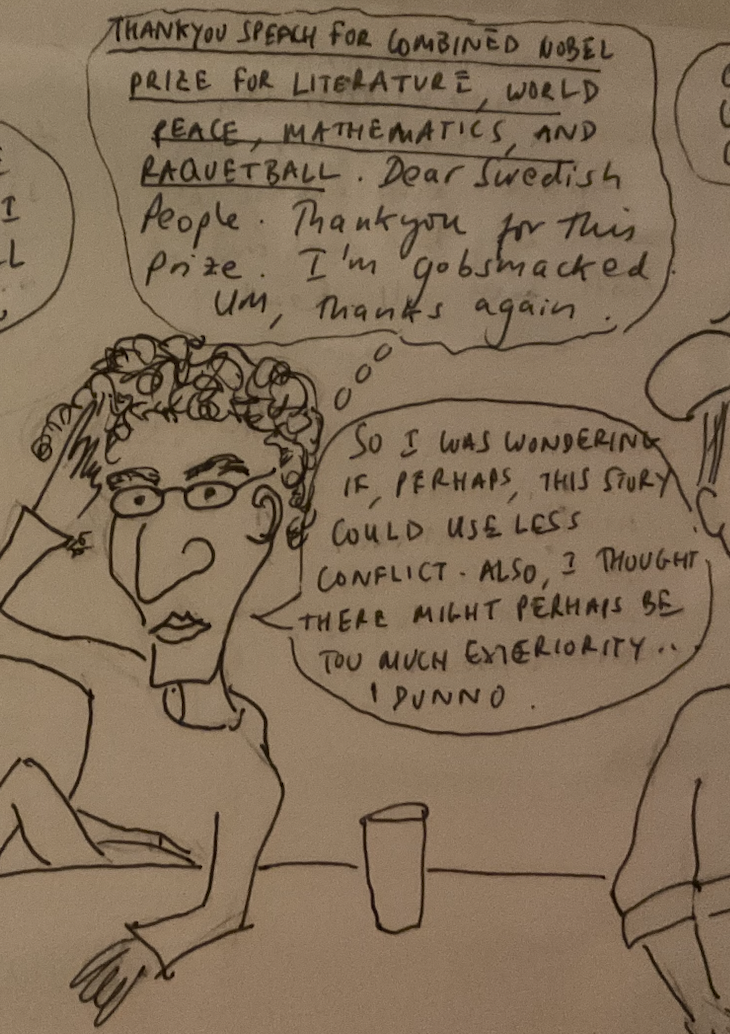 THANKYOU SPEACH FOR COMBINED NOBEL
PRIZE FOR LITERATURE, WORLD
PEACE, MATHEMATICS, AND
RAQUETBALL. Dear Swedish
People. Thankyou for this
prize. I'm gobsmacked.
UM, thanks again.
SO I WAS WONDERING
IF, PERHAPS, THIS STORY
COULD USE LESS
CONFLICT. ALSO, I THOUGHT
THERE MIGHT PERHAPS BE
TOO MUCH EXTERIORITY..
I DUNNO.
I